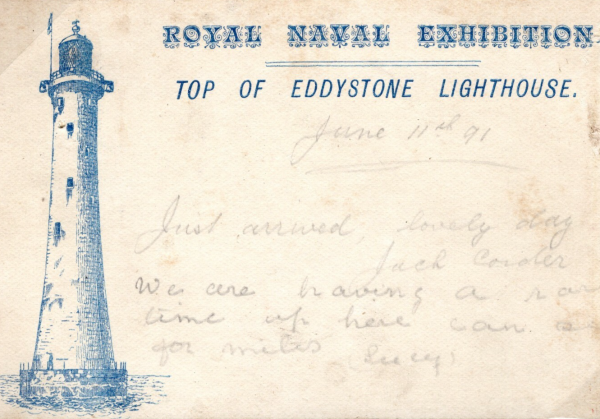 ROYAL NAVAL EXHIBITION
TOP OF EDDYSTONE LIGHTHOUSE.
June 11th 91
Just arrived, lovely day
Jack Corder
We are having a
time up here can
for miles (Lucy)